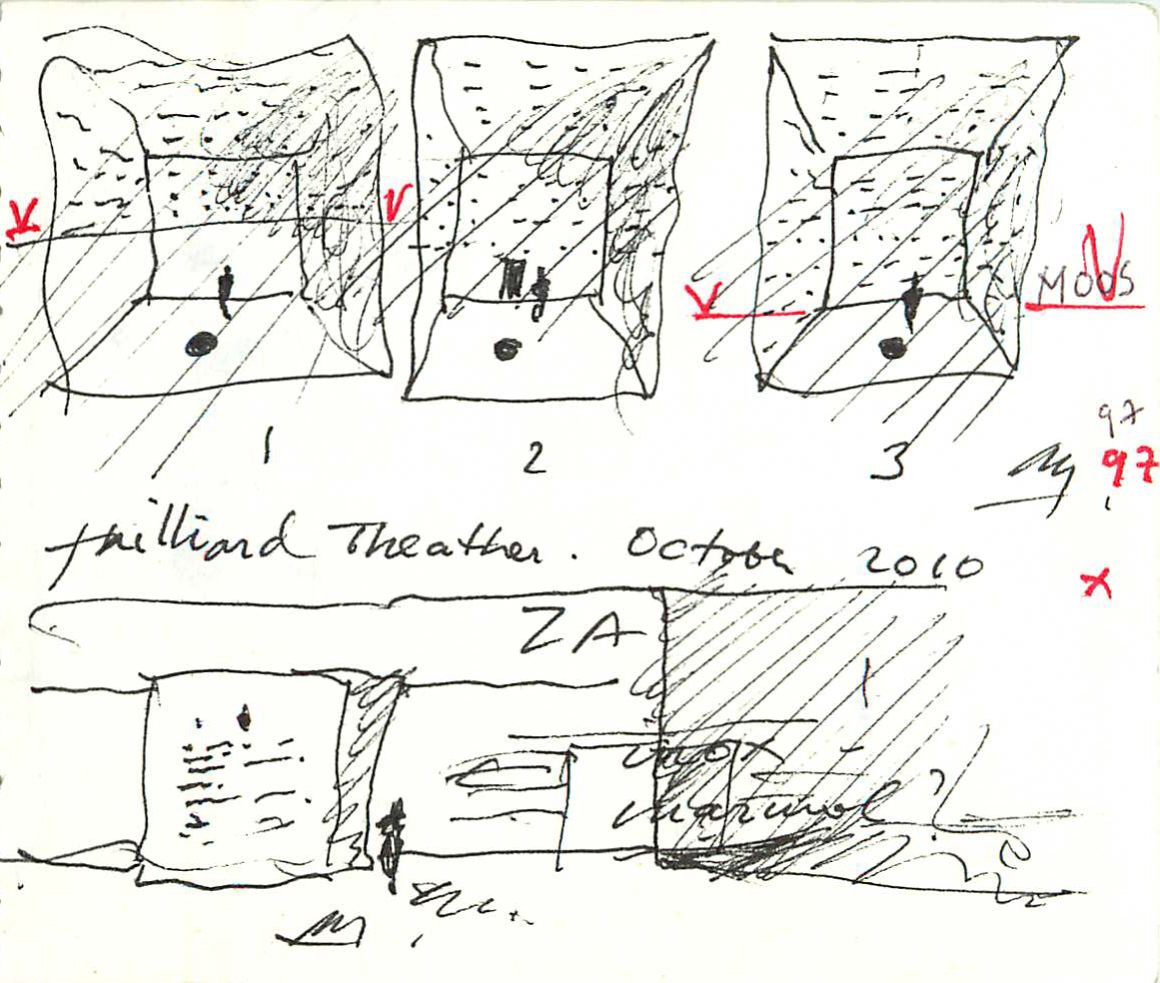 V V
V MOOS
1 2 3
97
97
Juilliard Theather. October 2010
ZA
1
inox
marmol?